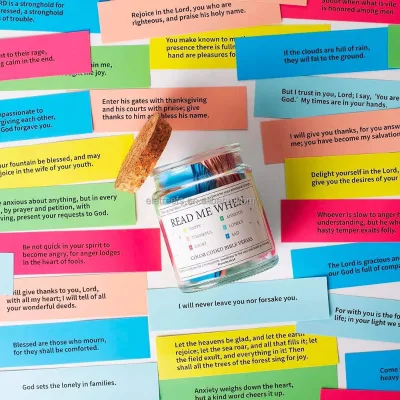 RD is a stronghold for
pressed, a stronghold
of trouble.
Rejoice in the Lord, you who are
righteous, and praise his holy name.
when what is vile
is honored among men.
nt to their rage,
ng calm in the end.
You make known to m
presence there is full
hand are pleasures fo
If the clouds are full of rain,
they will fall to the ground.
the joy.
But I trust in you, Lord; I say, 'You are
God.' My times are in your hands.
mpassionate to
orgiving each other,
God forgave you.
Enter his gates with thanksgiving
and his courts with praise; give
thanks to him and bless his name.
I will give you thanks, for you answe
me; you have become my salvation
fountain be blessed, and may
rejoice in the wife of your youth.
Delight yourself in the Lord,
give you the desires of your
e anxious about anything, but in every
, by prayer and petition, with
giving, present your requests to God.
READ ME WHEN...
HAPPY
ANXIOUS
LONELY
ANGRY
SAD
COLOR CODED BIBLE VERSES
Whoever is slow to anger
understanding, but he who
hasty temper exalts folly.
Be not quick in your spirit to
become angry, for anger lodges
in the heart of fools.
The Lord is gracious an
our God is full of compa
will give thanks to you, Lord,
with all my heart; I will tell of all
your wonderful deeds.
I will never leave you nor forsake you.
With you is the fo
life; in your light we s
Blessed are those who mourn,
for they shall be comforted.
Let the heavens be glad, and let the earth
rejoice; let the sea roar, and all that fills it; let
the field exult, and everything in it! Then
shall all the trees of the forest sing for joy.
God sets the lonely in families.
Anxiety weighs down the heart,
but a kind word cheers it up.
Come
heavy